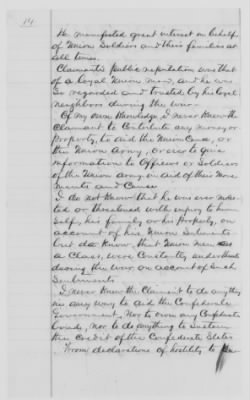 14
He manifested great interest on behalf
of Union Soldiers and their families at
all times.
Claimant's public reputation was that
of a loyal Union man, and he was
so regarded and trusted by his loyal
neighbors during the war.
Of my own Knowledge, I never knew the
Claimant to Contribute any money or
property, to aid the Union Cause, or
the Union Army, or ever to give
information to Officers or Soldiers
of the Union army in aid of their move
ments and Cause
I do not Know that he was ever moles-
ted or threatened with injury to him
self, his family, or his property, on
account of his Union Sentiments
but do Know, that Union men as
a Class, were Constantly under threats
during the war, on account of Such
Sentiments.
I never Knew the Claimant to do anything
in any way to aid the Confederate
Government, Nor to own any Confederate
bonds, Nor do anything to Sustain
the Credit of the Confederate States
From declarations of hostility to the